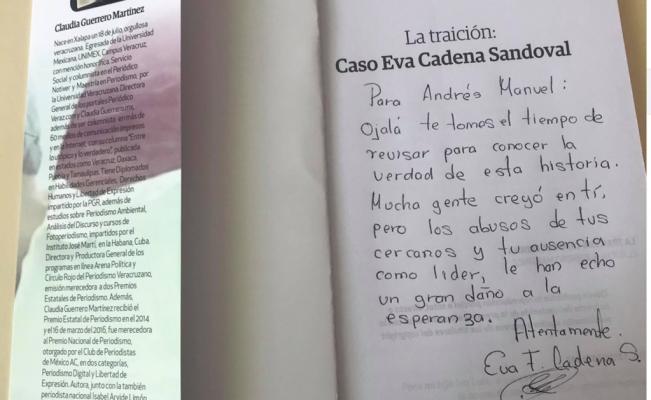 Claudia Guerrero Martínez
Nace en Xalapa un 18 de julio, orgullosa
veracruzana. Egresada de la Universidad
Mexicana, UNIMEX, Campus Veracruz,
con mención honorífica. Servicio
Social y columnista en el Periódico
Notiver y Maestría en Periodismo, por
la Universidad Veracruzana. Directora
General de los portales Periódico
Veraz.com y Claudia Guerrero.mx,
además de ser columnista en más de
60 medios de comunicación impresos
y en Internet, con su columna "Entre
lo utópico y lo verdadero", publicada
en estados como Veracruz, Oaxaca,
Puebla y Tamaulipas. Tiene Diplomados
en Habilidades Gerenciales, Derechos
Humanos y Libertad de Expresión
impartido por la PGR, además de
estudios sobre Periodismo Ambiental,
Análisis del Discurso y cursos de
Fotoperiodismo, impartidos por el
Instituto José Martí, en la Habana, Cuba.
Directora y Productora General de los
programas en línea Arena Política y
Círculo Rojo del Periodismo Veracruzano,
emisión merecedora a dos Premios
Estatales de Periodismo. Además,
Claudia Guerrero Martínez recibió el
Premio Estatal de Periodismo en el 2014
y el 16 de marzo del 2015, fue merecedora
al Premio Nacional de Periodismo,
otorgado por el Club de Periodistas
de México AC, en dos categorías,
Periodismo Digital y Libertad de
Expresión. Autora, junto con la también
periodista nacional Isabel Arvide Limón
La traición:
Caso Eva Cadena Sandoval
Para Andrés Manuel:
Ojalá te tomes el tiempo de
revisar para conocer la
verdad de esta historia.
Mucha gente creyó en tí,
pero los abusos de tus
cercanos y tu ausencia
como lider, le han echo
un gran daño a la
esperanza.
Atentamente.
Eva F. Cadena S.